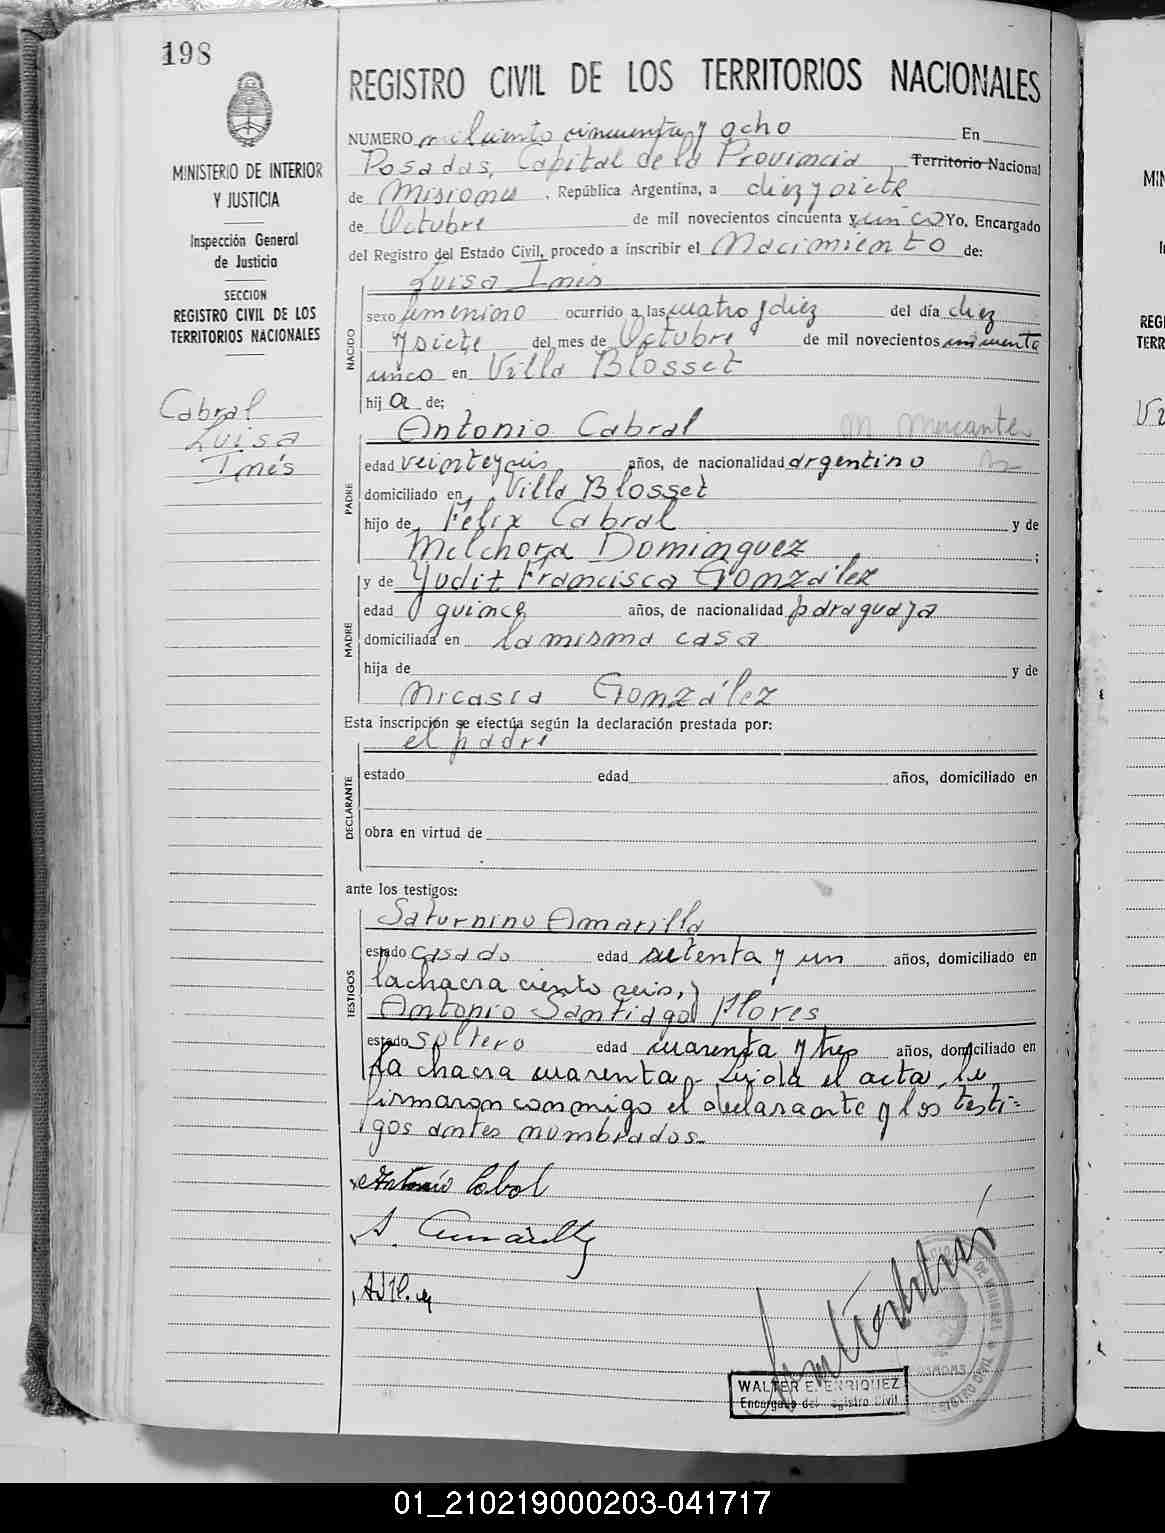 198
MINISTERIO DE INTERIOR
Y JUSTICIA
Inspección General
de Justicia
SECCION
REGISTRO CIVIL DE LOS
TERRITORIOS NACIONALES
Cabral
Luisa
Inés
REGISTRO CIVIL DE LOS TERRITORIOS NACIONALES
NUMERO mil ciento cincuenta y ocho En
Posadas, Capital de la Provincia Territorio Nacional
de Misiones, República Argentina, a diez y siete
de Octubre de mil novecientos cincuenta y unco Yo, Encargado
del Registro del Estado Civil, procedo a inscribir el Nacimiento de:
Luisa Inés
NACIDO
sexo femenino ocurrido a las cuatro y diez del día diez
y siete del mes de Octubre de mil novecientos cincuenta
unco en Villa Blosset
hija de;
PADRE
Antonio Cabral M Mercante
edad veinteyseis años, de nacionalidad argentino
domiciliado en Villa Blosset
hijo de Félix Cabral y de
Melchora Dominguez ;
MADRE
y de Yudit Francisca González
edad quince años, de nacionalidad paraguaya
domiciliada en la misma casa
hija de y de
Nicasia González
Esta inscripción se efectúa según la declaración prestada por:
el padre
DECLARANTE
estado edad años, domiciliado en
obra en virtud de
ante los testigos:
TESTIGOS
Saturnino Amarilla
estado casado edad setenta y un años, domiciliado en
la chacra ciento seis, y
Antonio Santiago Flores
estado soltero edad cuarenta y tres años, domiciliado en
la chacra cuarenta. Leída el acta, la
firmaron conmigo el declarante y los testi=
gos antes nombrados.
Antonio Cabral
S. Amarilla
WALTER E. ENRIQUEZ
Encargado del Registro Civil
MIN
REGI
TERR
01_210219000203-041717